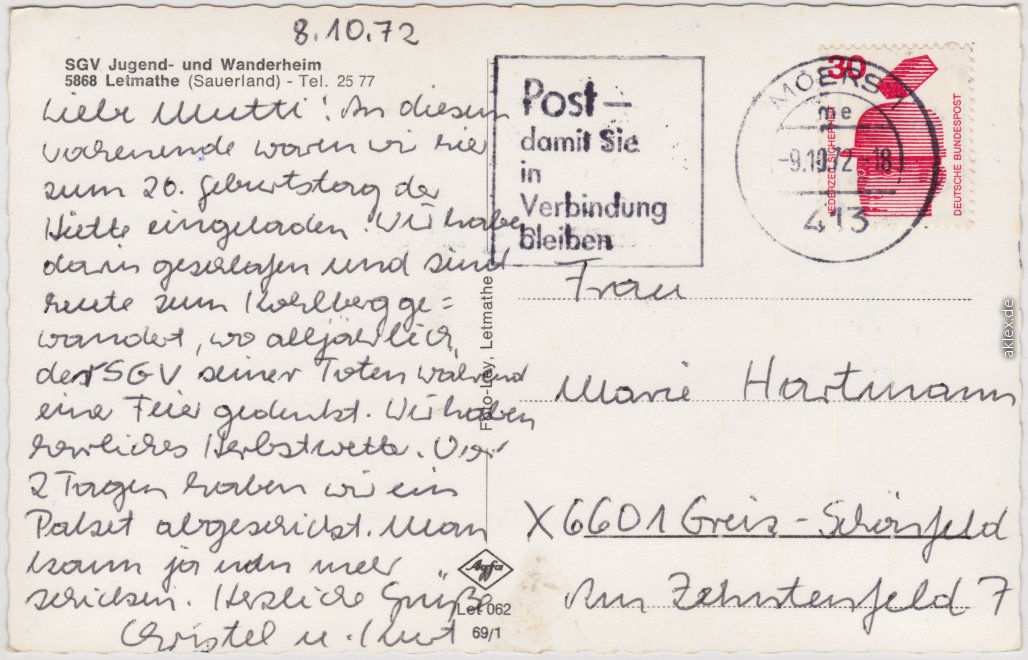 8.10.72
SGV Jugend- und Wanderheim
5868 Letmathe (Sauerland) - Tel. 25 77
Liebe Mutti! An diesem
Wochenende waren wir hier
zum 20. Geburtstag der
Hütte eingeladen. Wir haben
darin geschlafen und sind
heute zum Kohlberg ge=
wandert, wo alljährlich
der SGV seiner Toten während
eine Feier gedenkt. Wir haben
herrliches Herbstwetter. Vor
2 Tagen haben wir ein
Paket abgeschickt. Man
kann ja nun mehr
schicken. Herzliche Grüße
Christel u. Kurt
Post–
damit Sie
in
Verbindung
bleiben
MOERS 1
me
-9.10.72-18
413
30
JEDERZEIT SICHERHEIT
DEUTSCHE BUNDESPOST
Foto-Ley, Letmathe
Agfa
Let 062
69/1
Frau
Marie Hartmann
X6601 Greiz-Schönfeld
Am Zehntenfeld 7
aklex.de